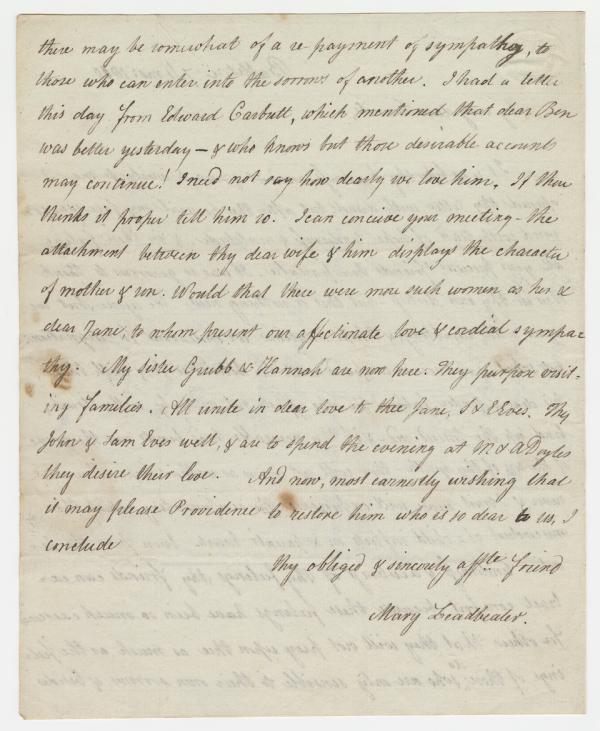 there may be somewhat of a re-payment of sympathy, to
those who can enter into the sorrows of another. I had a letter
this day from Edward Carbutt, which mentioned that dear Ben
was better yesterday — & who knows but those desirable accounts
may continue! I need not say how dearly we love him. If thou
thinks it proper tell him so. I can conceive your meeting – the
attachment between thy dear wife & him displays the character
of mother & son. Would that there were more such women as her &
dear Jane, to whom present our affectionate love & cordial sympa-
thy. My Sister Grubb & Hannah are now here. They purpose visit-
ing families. All unite in dear love to thee Jane, S & E Eves. Thy
John & Sam Eves well, & are to spend the evening at M & A Doyles
they desire their love. And now, most earnestly wishing that
it may please Providence to restore him who is so dear to us, I
conclude
thy obliged & sincerely affte friend
Mary Leadbeater.